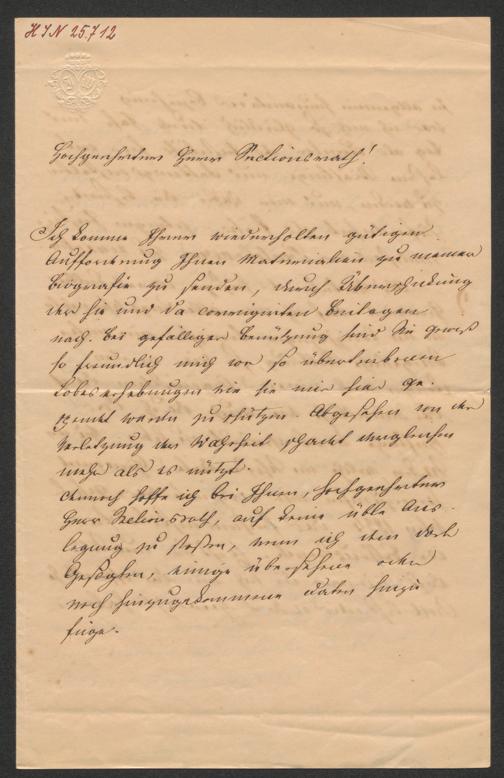 HIN 25.712
Hochgeehrter Herr Sectionsrath!
Ich komme Ihrer wiederholten gütigen
Aufforderung Ihnen Materialien zu meiner
Biografie zu senden, durch Überschickung
der hie und da corrigirten Beilagen
nach. Bei gefälliger Benützung sind Sie gewiss
so freundlich mich vor so übertriebenen
Lobeserhebungen wie sie mir hier ge-
spendet werden zu schützen. Abgesehen von der
Verletzung der Wahrheit schadet dergleichen
mehr als es nützt.
Dennoch hoffe ich bei Ihnen, hochgeehrter
Herr Sectionsrath, auf keine üble Aus-
legung zu stoßen, wenn ich dem dort
Gesagten, einige übersehene oder
noch hinzugekommene Daten hinzu
füge.